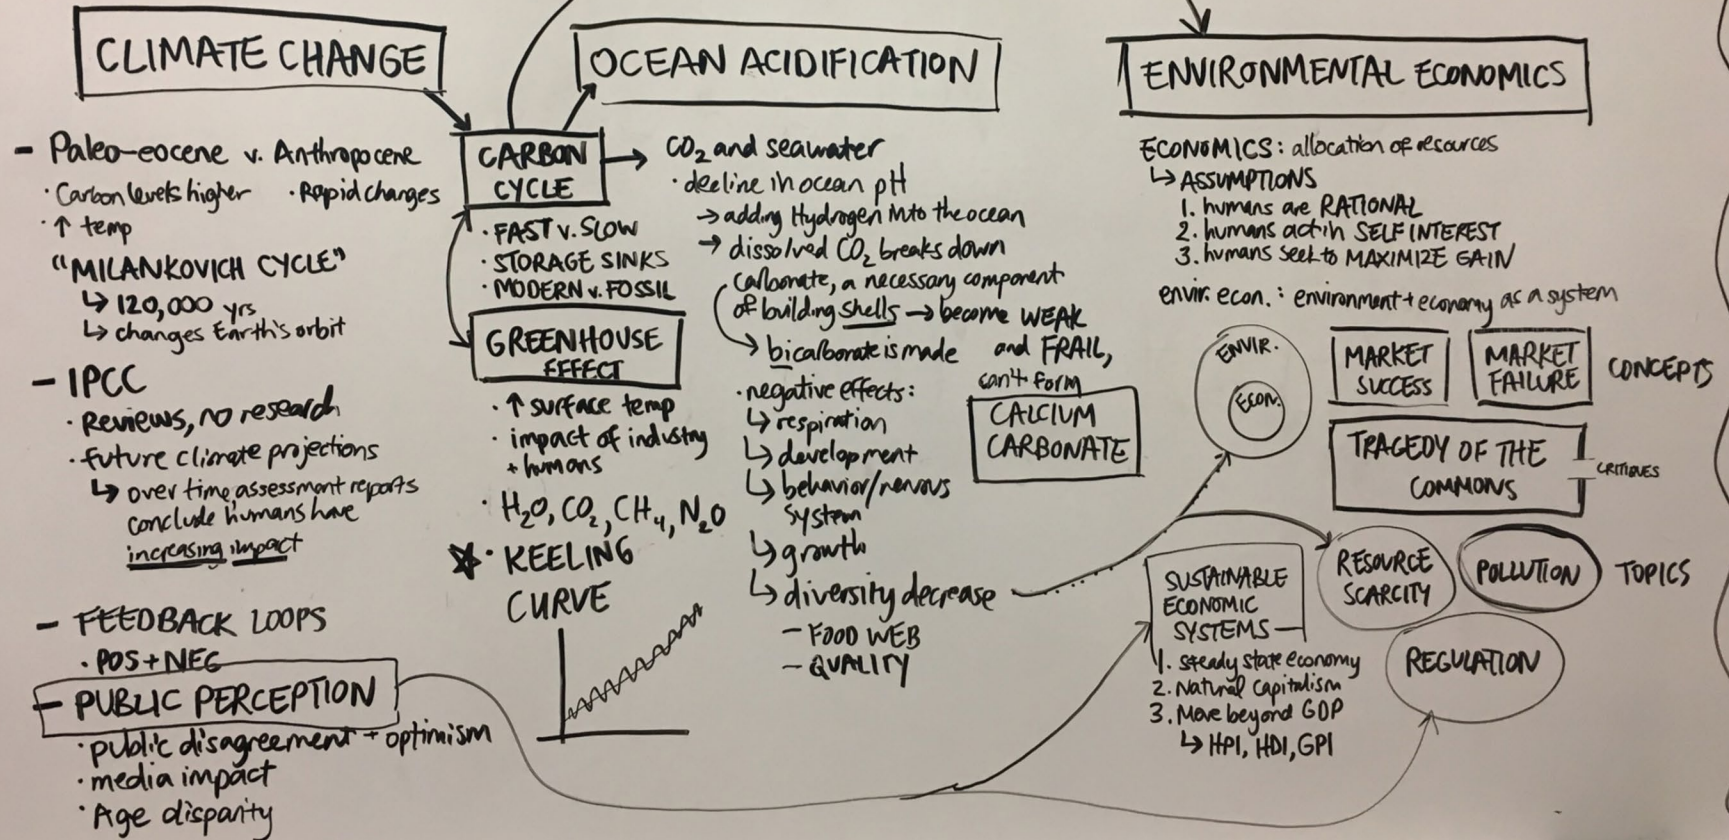 CLIMATE CHANGE
- Paleo-eocene v. Anthropocene
· Carbon levels higher · Rapid changes
· ↑ temp
"MILANKOVICH CYCLE"
↳ 120,000 yrs
↳ changes Earth's orbit
- IPCC
· Reviews, no research
· future climate projections
↳ over time, assessment reports
conclude humans have
increasing impact
- FEEDBACK LOOPS
· POS + NEG
- PUBLIC PERCEPTION
· public disagreement + optimism
· media impact
· Age disparity
CARBON
CYCLE
· FAST v. SLOW
· STORAGE SINKS
· MODERN v. FOSSIL
GREENHOUSE
EFFECT
· ↑ surface temp
· impact of industry
+ humans
· H₂O, CO₂, CH₄, N₂O
· KEELING
CURVE
OCEAN ACIDIFICATION
CO₂ and seawater
· decline in ocean pH
→ adding Hydrogen into the ocean
→ dissolved CO₂ breaks down
carbonate, a necessary component
of building shells → become WEAK
and FRAIL,
↳ bicarbonate is made
can't form
CALCIUM
CARBONATE
· negative effects:
↳ respiration
↳ development
↳ behavior/nervous
system
↳ growth
↳ diversity decrease
- FOOD WEB
- QUALITY
ENVIRONMENTAL ECONOMICS
ECONOMICS: allocation of resources
↳ ASSUMPTIONS
1. humans are RATIONAL
2. humans act in SELF INTEREST
3. humans seek to MAXIMIZE GAIN
envir. econ.: environment + economy as a system
ENVIR.
ECON.
MARKET
SUCCESS
MARKET
FAILURE
CONCEPTS
TRAGEDY OF THE
COMMONS
CRITIQUES
RESOURCE
SCARCITY
POLLUTION
TOPICS
REGULATION
SUSTAINABLE
ECONOMIC
SYSTEMS
1. Steady state economy
2. Natural Capitalism
3. Move beyond GDP
↳ HPI, HDI, GPI